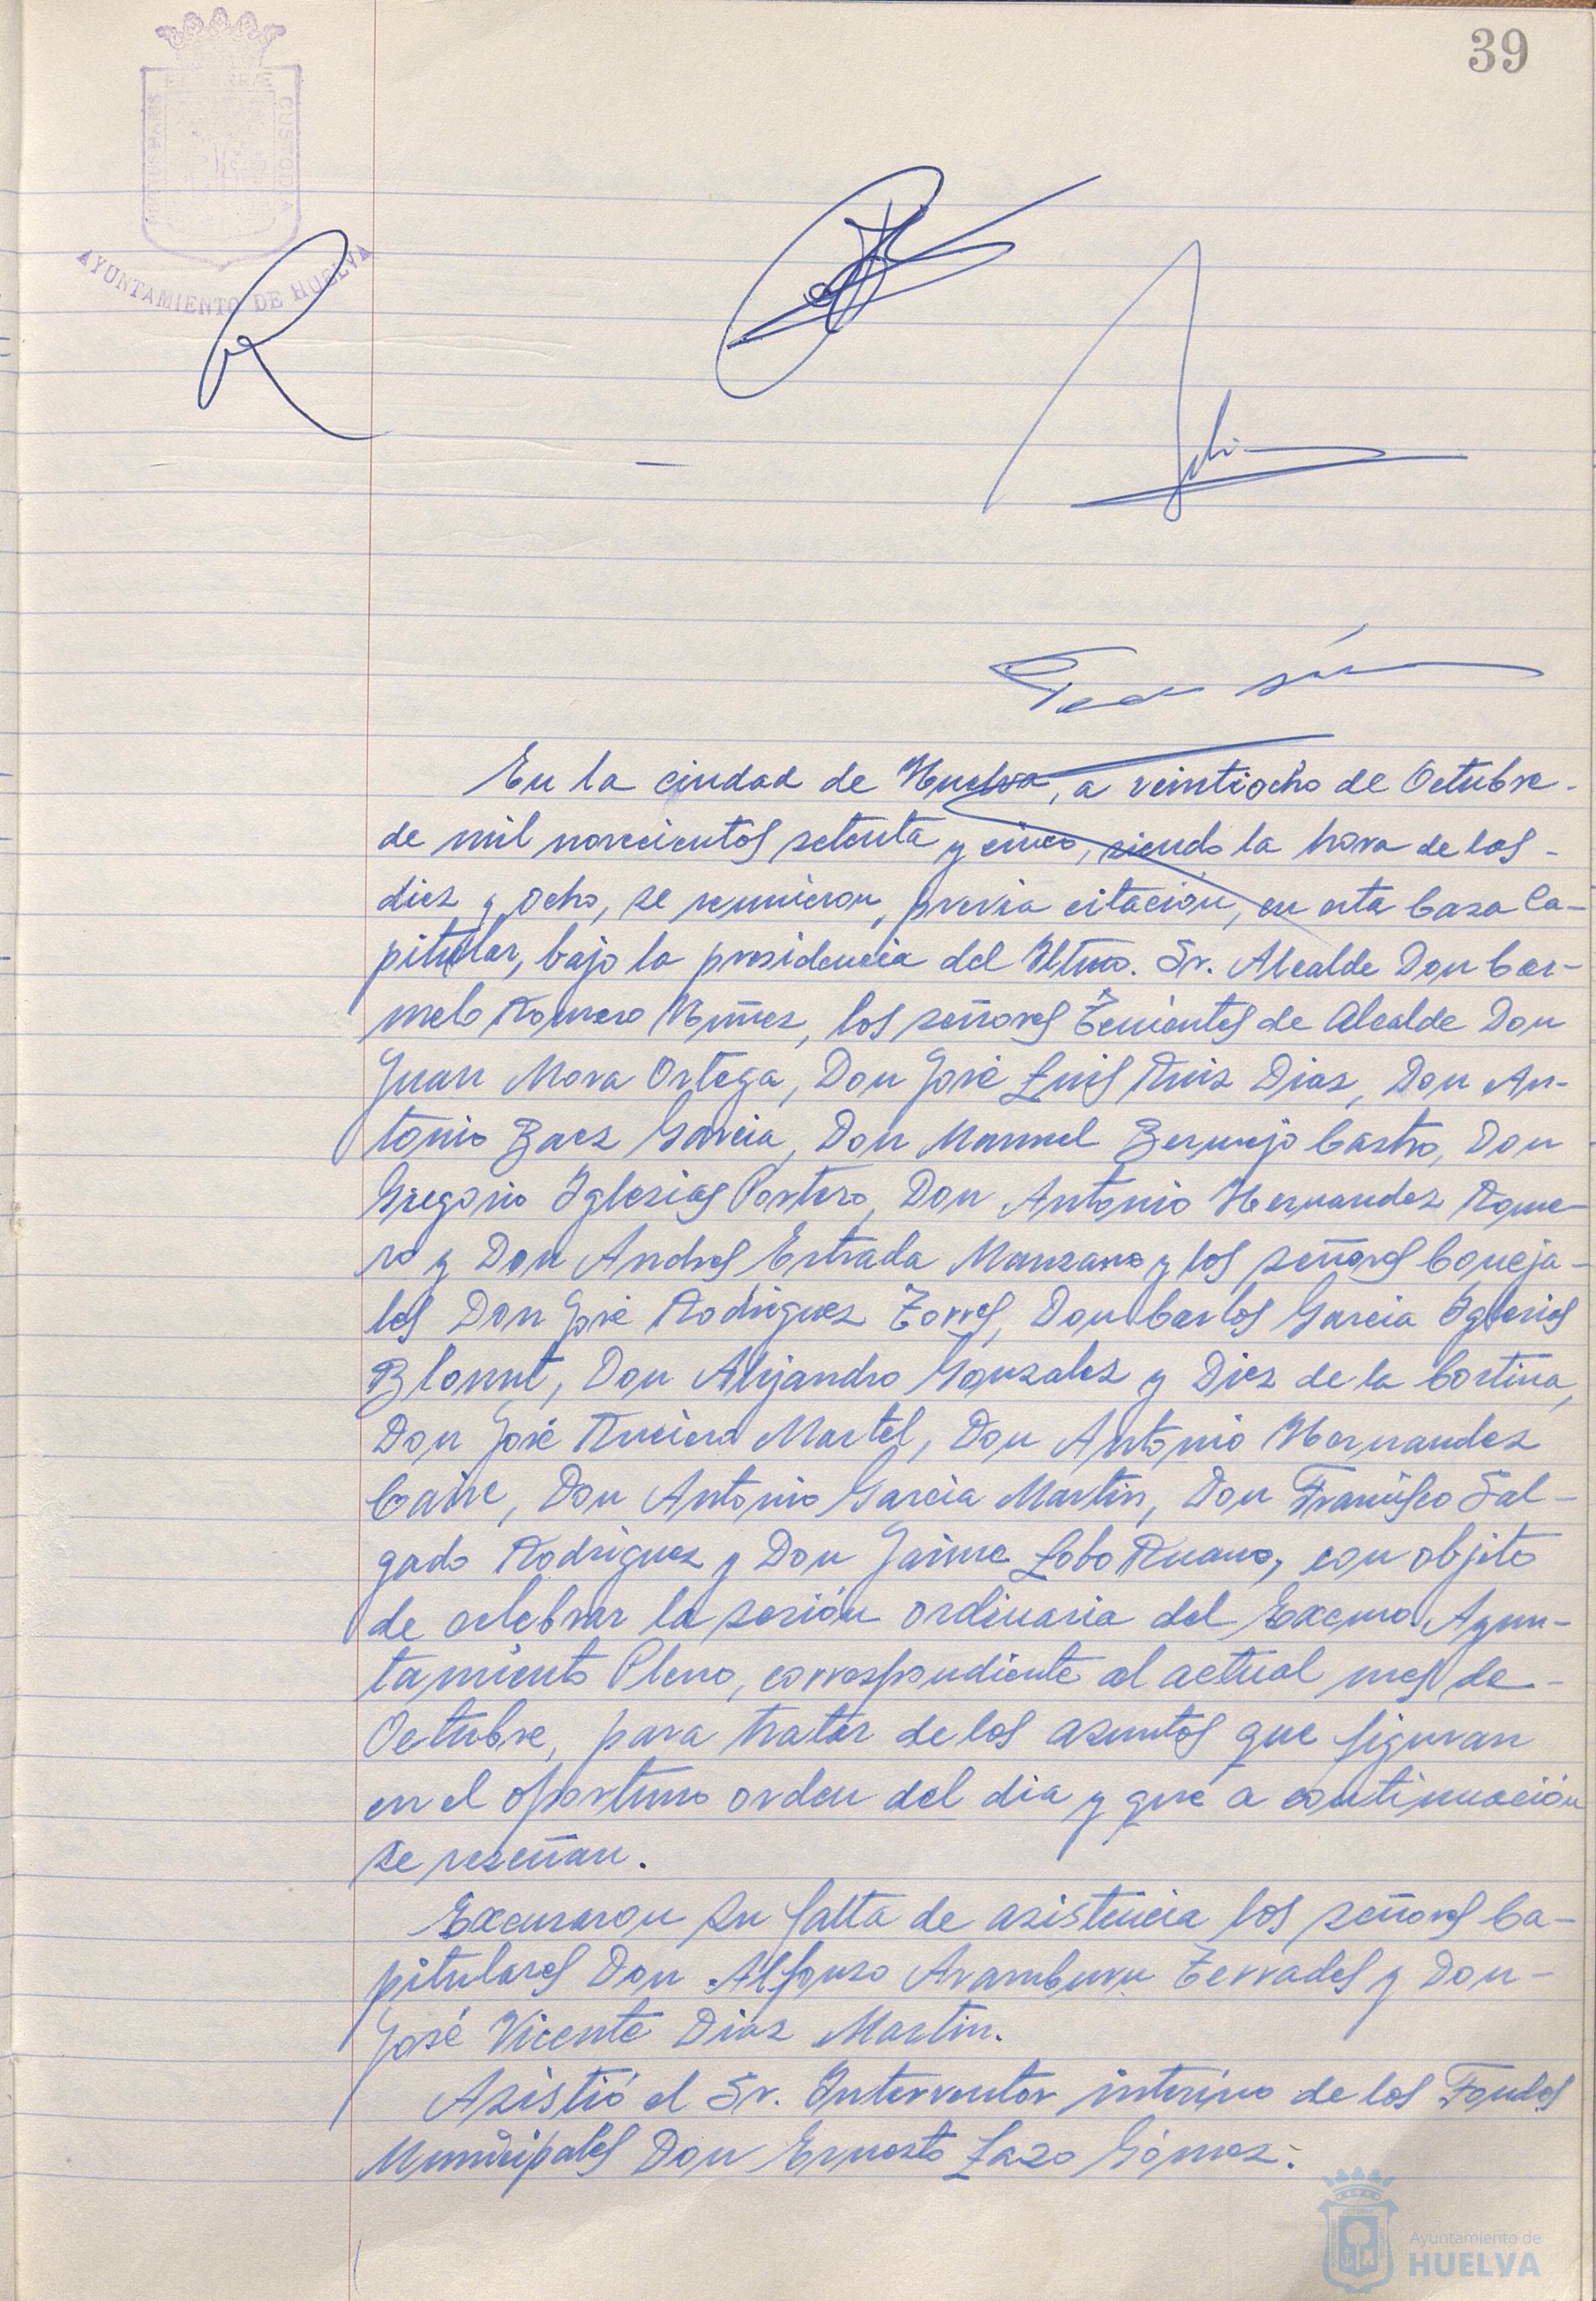 39
PORTUS MARIS ET TERRÆ CUSTODIA
AYUNTAMIENTO DE HUELVA
En la ciudad de Huelva, a veintiocho de Octubre -
de mil novecientos setenta y cinco, siendo la hora de las -
diez y ocho, se reunieron, previa citación, en esta Casa Ca-
pitular, bajo la presidencia del Iltmo. Sr. Alcalde Don Car-
melo Romero Nuñez, los señores Tenientes de Alcalde Don
Juan Mora Ortega, Don José Luis Ruiz Diaz, Don An-
tonio Baez Garcia, Don Manuel Bermejo Castro, Don
Gregorio Iglesias Portero, Don Antonio Hernandez Rome-
ro y Don Andres Estrada Manzano y los señores Conceja-
les Don José Rodriguez Torres, Don Carlos Garcia Iglesias
Blount, Don Alejandro Gonzalez y Diez de la Cortina,
Don José Martel, Don Antonio Hernandez
Don Antonio Garcia Martin, Don Francisco Sal-
gado Rodriguez y Don Jaime Lobo Ruano, con objeto
de celebrar la sesión ordinaria del Excmo. Ayun-
tamiento Pleno, correspondiente al actual mes de -
Octubre, para tratar de los asuntos que figuran
en el oportuno orden del dia y que a continuación
se reseñan.
Excusaron su falta de asistencia los señores Ca-
pitulares Don Alfonso Aramburu Terrades y Don -
José Vicente Diaz Martin.
Asistió el Sr. Interventor interino de los Fondos
Municipales Don Ernesto Lazo Gómez.
Ayuntamiento de
HUELVA